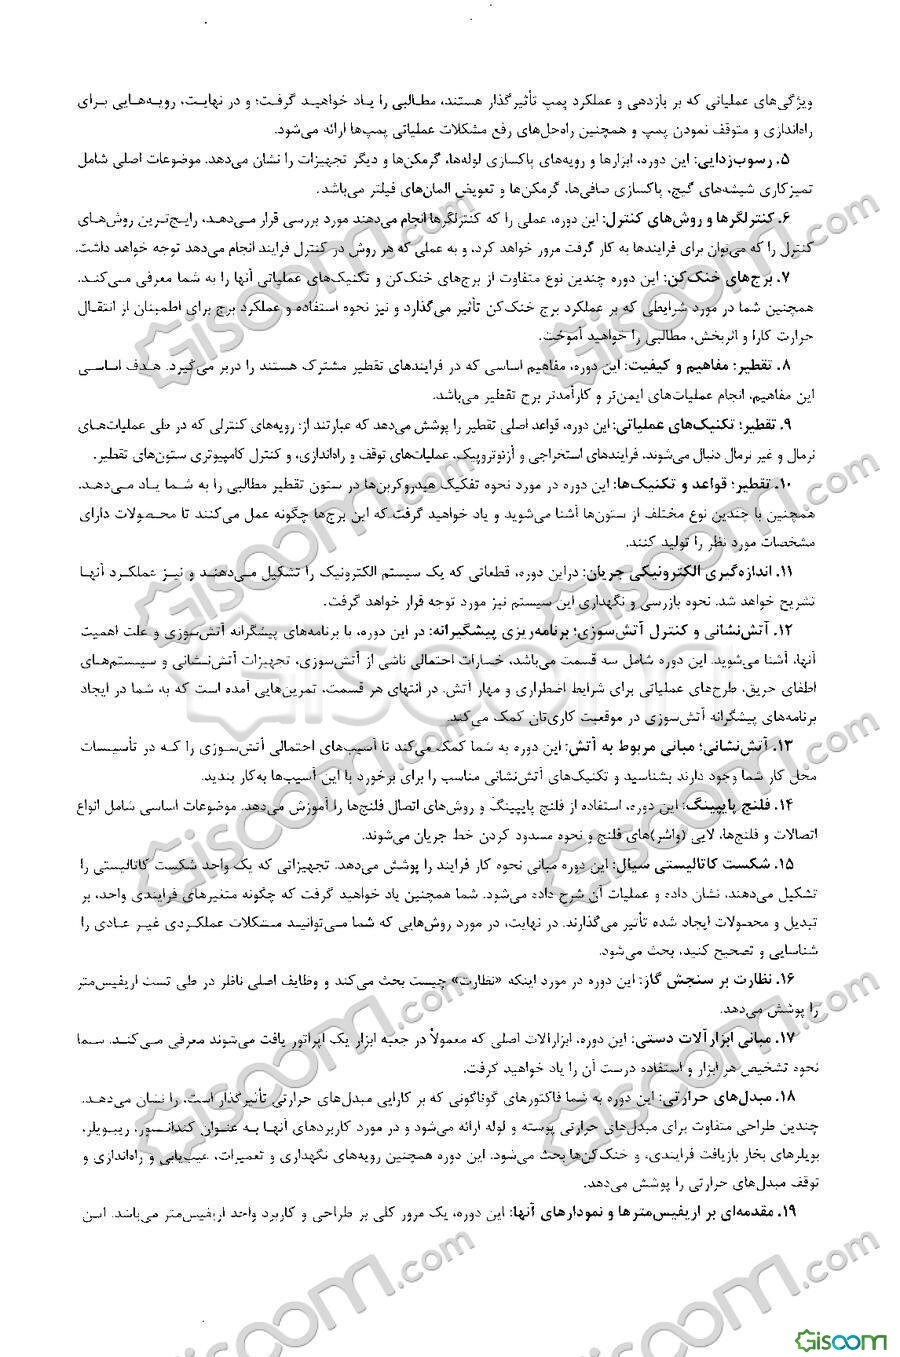 ویژگی‌های عملیاتی که بر بازدهی و عملکرد پمپ تأثیرگذار هستند، مطالبی را یاد خواهید گرفت؛ و در نهایت، رویه‌هایی برای
راه‌اندازی و متوقف نمودن پمپ و همچنین راه‌حل‌های رفع مشکلات عملیاتی پمپ‌ها ارائه می‌شود.
۵. رسوب‌زدایی: این دوره، ابزارها و رویه‌های پاکسازی لوله‌ها، گرمکن‌ها و دیگر تجهیزات را نشان می‌دهد. موضوعات اصلی شامل
تمیزکاری شیشه‌های گیج، پاکسازی صافی‌ها، گرمکن‌ها و تعویض المان‌های فیلتر می‌باشد.
۶. کنترلگرها و روش‌های کنترل: این دوره، عملی را که کنترلگرها انجام می‌دهند مورد بررسی قرار می‌دهد، رایج‌ترین روش‌های
کنترل را که می‌توان برای فرایندها به کار گرفت مرور خواهد کرد، و به عملی که هر روش در کنترل فرایند انجام می‌دهد توجه خواهد داشت.
۷. برج‌های خنک‌کن: این دوره چندین نوع متفاوت از برج‌های خنک‌کن و تکنیک‌های عملیاتی آنها را به شما معرفی می‌کند.
همچنین شما در مورد شرایطی که بر عملکرد برج خنک‌کن تأثیر می‌گذارد و نیز نحوه استفاده و عملکرد برج برای اطمینان از انتقال
حرارت کارا و اثربخش، مطالبی را خواهید آموخت.
۸. تقطیر: مفاهیم و کیفیت: این دوره، مفاهیم اساسی که در فرایندهای تقطیر مشترک هستند را دربر می‌گیرد. هدف اساسی
این مفاهیم، انجام عملیات‌های ایمن‌تر و کارآمدتر برج تقطیر می‌باشد.
۹. تقطیر؛ تکنیک‌های عملیاتی: این دوره، قواعد اصلی تقطیر را پوشش می‌دهد که عبارتند از: رویه‌های کنترلی که در طی عملیات‌های
نرمال و غیر نرمال دنبال می‌شوند، فرایندهای استخراجی و آزئوتروپیک، عملیات‌های توقف و راه‌اندازی، و کنترل کامپیوتری ستون‌های تقطیر.
۱۰. تقطیر؛ قواعد و تکنیک‌ها: این دوره در مورد نحوه تفکیک هیدروکربن‌ها در ستون تقطیر مطالبی را به شما یاد می‌دهد.
همچنین با چندین نوع مختلف از ستون‌ها آشنا می‌شوید و یاد خواهید گرفت که این برج‌ها چگونه عمل می‌کنند تا محصولات دارای
مشخصات مورد نظر را تولید کنند.
۱۱. اندازه‌گیری الکترونیکی جریان: دراین دوره، قطعاتی که یک سیستم الکترونیک را تشکیل می‌دهند و نیز عملکرد آنها
تشریح خواهد شد. نحوه بازرسی و نگهداری این سیستم نیز مورد توجه قرار خواهد گرفت.
۱۲. آتش‌نشانی و کنترل آتش‌سوزی؛ برنامه‌ریزی پیشگیرانه: در این دوره، با برنامه‌های پیشگرانه آتش‌سوزی و علت اهمیت
آنها، آشنا می‌شوید. این دوره شامل سه قسمت می‌باشد، خسارات احتمالی ناشی از آتش‌سوزی، تجهیزات آتش‌نشانی و سیستم‌های
اطفای حریق، طرح‌های عملیاتی برای شرایط اضطراری و مهار آتش. در انتهای هر قسمت، تمرین‌هایی آمده است که به شما در ایجاد
برنامه‌های پیشگرانه آتش‌سوزی در موقعیت کاری‌تان کمک می‌کند.
۱۳. آتش‌نشانی؛ مبانی مربوط به آتش: این دوره به شما کمک می‌کند تا آسیب‌های احتمالی آتش‌سوزی را که در تأسیسات
محل کار شما وجود دارند بشناسید و تکنیک‌های آتش‌نشانی مناسب را برای برخورد با این آسیب‌ها به‌کار بندید.
۱۴. فلنج پایپینگ: این دوره، استفاده از فلنج پایپینگ و روش‌های اتصال فلنج‌ها را آموزش می‌دهد. موضوعات اساسی شامل انواع
اتصالات و فلنج‌ها، لایی (واشر)های فلنج و نحوه مسدود کردن خط جریان می‌شوند.
۱۵. شکست کاتالیستی سیال: این دوره مبانی نحوه کار فرایند را پوشش می‌دهد. تجهیزاتی که یک واحد شکست کاتالیستی را
تشکیل می‌دهند، نشان داده و عملیات آن شرح داده می‌شود. شما همچنین یاد خواهید گرفت که چگونه متغیرهای فرایندی واحد، بر
تبدیل و محصولات ایجاد شده تأثیر می‌گذارند. در نهایت، در مورد روش‌هایی که شما می‌توانید مشکلات عملکردی غیر عادی را
شناسایی و تصحیح کنید، بحث می‌شود.
۱۶. نظارت بر سنجش گاز: این دوره در مورد اینکه «نظارت» چیست بحث می‌کند و وظایف اصلی ناظر در طی تست اریفیس‌متر
را پوشش می‌دهد.
۱۷. مبانی ابزارآلات دستی: این دوره، ابزارالات اصلی که معمولاً در جعبه ابزار یک اپراتور یافت می‌شوند معرفی می‌کند. شما
نحوه تشخیص هر ابزار و استفاده درست آن را یاد خواهید گرفت.
۱۸. مبدل‌های حرارتی: این دوره به شما فاکتورهای گوناگونی که بر کارایی مبدل‌های حرارتی تأثیرگذار است، را نشان می‌دهد.
چندین طراحی متفاوت برای مبدل‌های حرارتی پوسته و لوله ارائه می‌شود و در مورد کاربردهای آنها به عنوان کندانسور، ریبویلر،
بویلرهای بخار بازیافت فرایندی، و خنک‌کن‌ها بحث می‌شود. این دوره همچنین رویه‌های نگهداری و تعمیرات، عیب‌یابی و راه‌اندازی و
توقف مبدل‌های حرارتی را پوشش می‌دهد.
۱۹. مقدمه‌ای بر اریفیس‌مترها و نمودارهای آنها: این دوره، یک مرور کلی بر طراحی و کاربرد واحد اریفیس‌متر می‌باشد. این
Gisoom